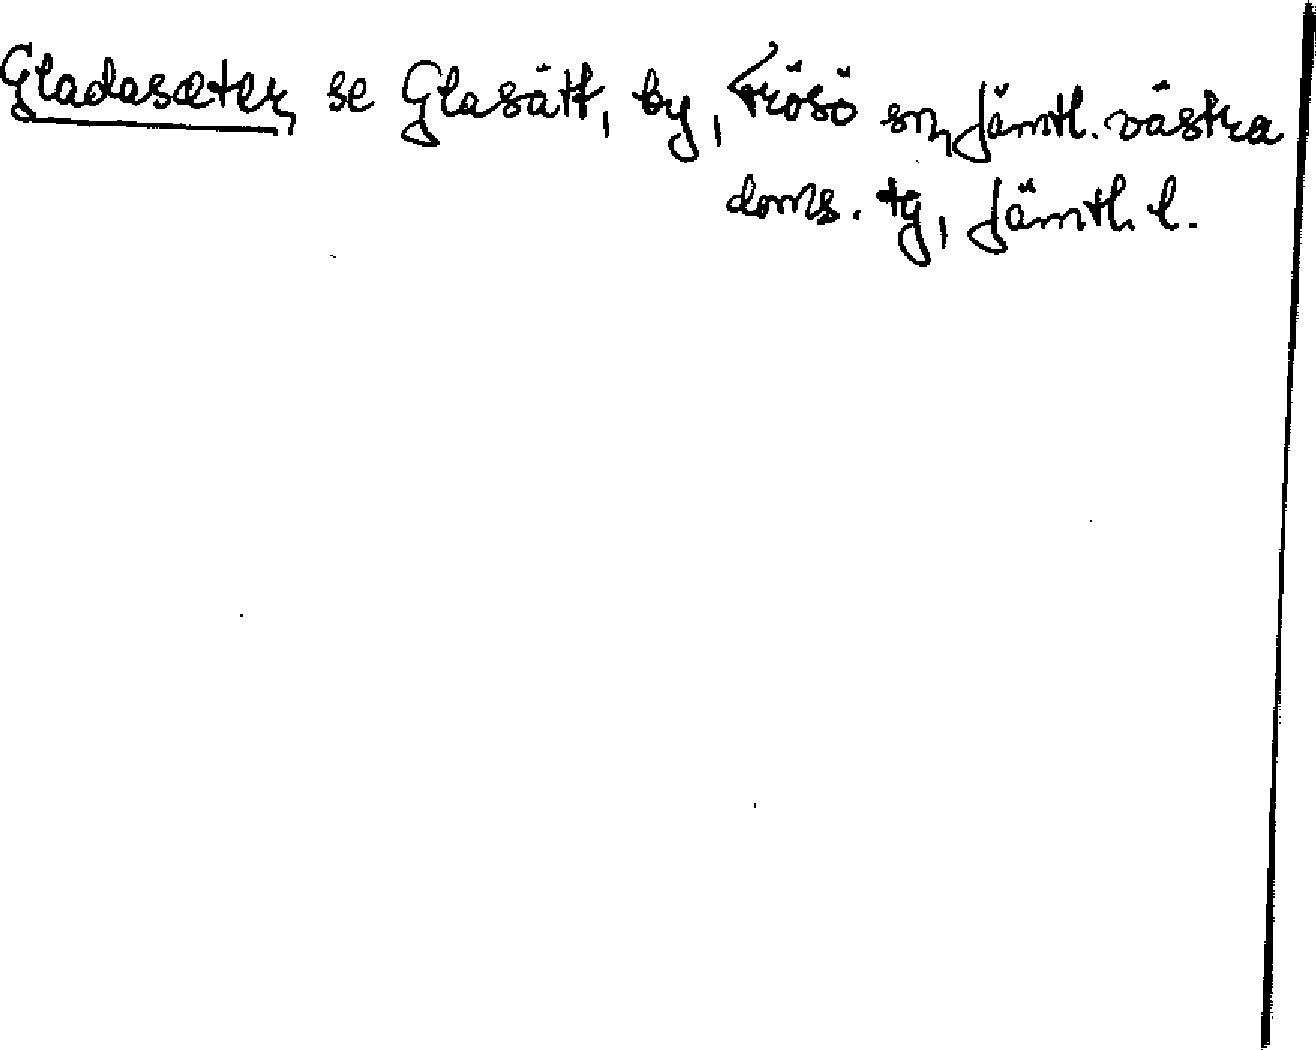 Gladasæter, se Glasätt, by, Frösö sn, Jämtl. västra
doms. tg, Jämtl. l.